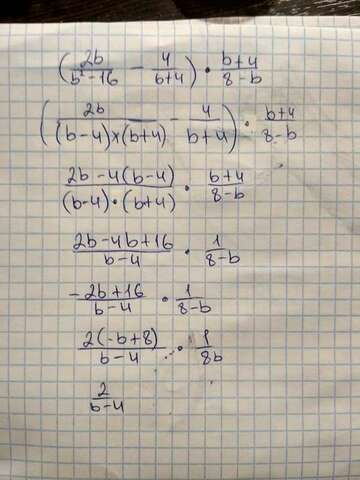 (2b/(b²-16) - 4/(b+4)) · (b+4)/(8-b)
(2b/((b-4)×(b+4)) - 4/(b+4)) · (b+4)/(8-b)
(2b-4(b-4))/((b-4)·(b+4)) · (b+4)/(8-b)
(2b-4b+16)/(b-4) · 1/(8-b)
(-2b+16)/(b-4) · 1/(8-b)
2(-b+8)/(b-4) · 1/(8b)
2/(b-4)